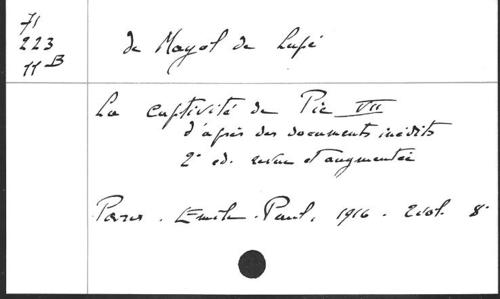 71
223
11 B
de Mayol de Lupé
La captivité de Pie VII
d'après des documents inédits
2e ed. revue et augmentée
Paris. Emile-Paul, 1916. 2 vol. 8°